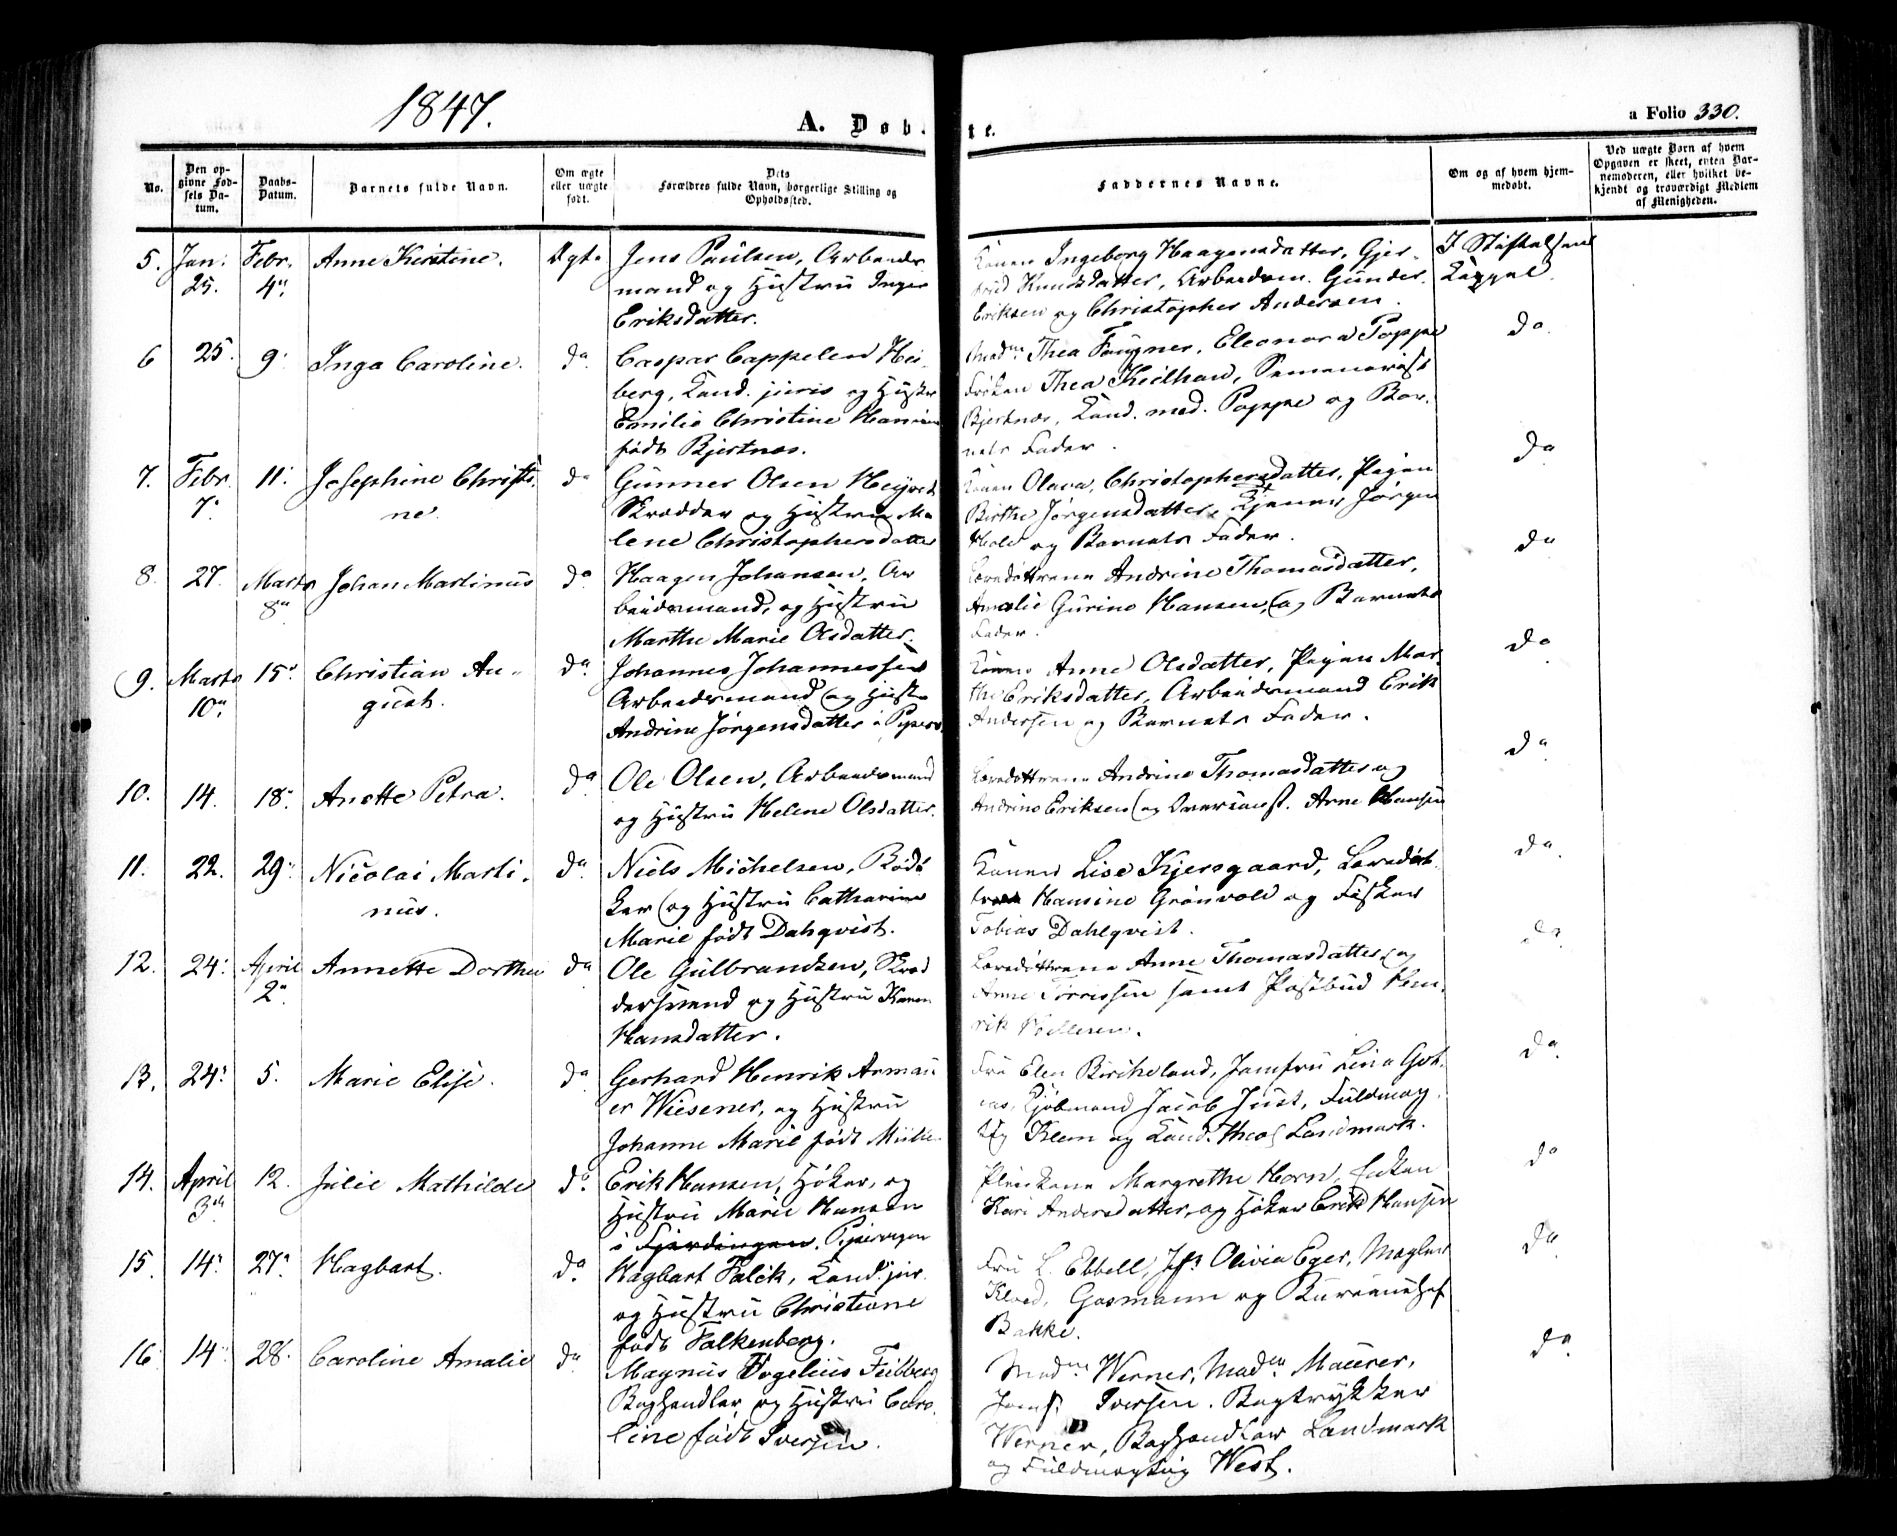 1847.
A. Døb-
te.
a Folio 330.
No.
Den op-
givne Fød-
sels Da-
tum.
Daabs-
Datum.
Barnets fulde Navn.
Om ægte
eller uægte
født.
Dets
Forældres fulde Navn, borgerlige Stilling og
Opholdssted.
Faddernes Navne.
Om og af hvem hjem-
medøbt.
Ved uægte Børn af hvem
Opgaven er skeet, enten Bar-
nemoderen, eller hvilket be-
kjendt og troværdigt Medlem
af Menigheden.
5. Jan: 25. Febr. 4de Anne Kirstine. Ægte
Jens Paulsen, Arbeids
mand og Hustru Inger
Eriksdatter.
Konen Ingeborg Haagensdatter, Gjer-
trud Knudsdatter, Arbeidsm. Gunder
Eriksen og Christopher Andersen.
I Stiftelsens
Kappel.
6 25. 9. Inga Caroline. do
Caspar Cappelen Hei-
berg, Cand. juris og Hustr
Emilie Christine
født Bjertnæs.
Madme Thea Fougner, Eleonora Poppe
Frøken Thea Keilhau, Semenarist
Bjertnæs, Cand. med. Poppe og Bar-
nets Fader.
do
7. Febr. 7. 11. Josephine Christi-
ne. do
Gunner Olsen
Skrædder og Hustru Ma
lene Christophersdatter
Konen Olava Christophersdatter, Pigen
Birthe Jørgensdatter, Tjener Jørgen
og Barnets Fader.
do
8. 27. Marts 8de Johan Martinus do
Haagen Johansen, Ar
beidsmand, og Hustru
Marthe Marie Olsdatter.
Læredøttrene Andrine Thomasdatter,
Amalie Gurine Hansen, og Barnets
Fader.
do
9. Marts 10de 15. Christian Au-
gust. do
Johannes Johannessen
Arbeidsmand og Hustr
Andrine Jørgensdatter i Pipero.
Konen Anne Olsdatter, Pigen Mar-
the Eriksdatter, Arbeidsmand Erik
Andersen og Barnets Fader.
do
10. 14. 18. Anette Petra. do
Ole Olsen, Arbeidsmand
og Hustru Helene Olsdatter.
Læredøttrene Andrine Thomasdatter og
Andrine Eriksen og Arne Hansen
do
11. 22. 29. Nicolai Marti-
nus. do
Niels Michelsen, Bød-
ker og Hustru Catharine
Marie født Dahqvist.
Konen Lise Kjersgaard, Læredøt-
Hansine Grønvold og Fisker
Tobias Dahlqvist.
do
12. 24. April 2de Annette Dorthea do
Ole Gulbrandsen, Skræd
dersvend og Hustru Karen
Hansdatter.
Læredøttrene Anne Thomasdatter og
Anne Torrissen samt Postbud Hen-
rik Pedersen.
do
13. 24. 5. Marie Elise. do
Gerhard Henrik Arman
er Wiesener, og Hustru
Johanne Marie født
Fru Elen Birchelund, Jomfru Lina
Kjøbmand Jacob Just, Fuldmæg
tig Klem og Cand. theol Landmark.
do
14. April 3de 12. Julie Mathilde do
Erik Hansen, Høker, og
Hustru Marie Hansen
i Fjerdingen. Pipervigen
Margrethe Horn, Enken
Kari Andersdatter, og Høker Erik Hansen
do
15. 14. 27. Hagbart. do
Hagbart Falck, Cand. jur.
og Hustru Christiane
født Falkenberg.
Fru L. Ebbell, Jfr Olivia Eger, Mægler
Gosmann og Bureauchef
Bakke.
do
16 14. 28. Caroline Amalie do
Magnus Vogelius Feilberg
Boghandler og Hustru Caro-
line født Iversen.
Madme Werner, Madme Maurer,
Jomf. Iversen. Bogtrykker
Werner, Boghandler Landmark
og Fuldmægtig West.
do